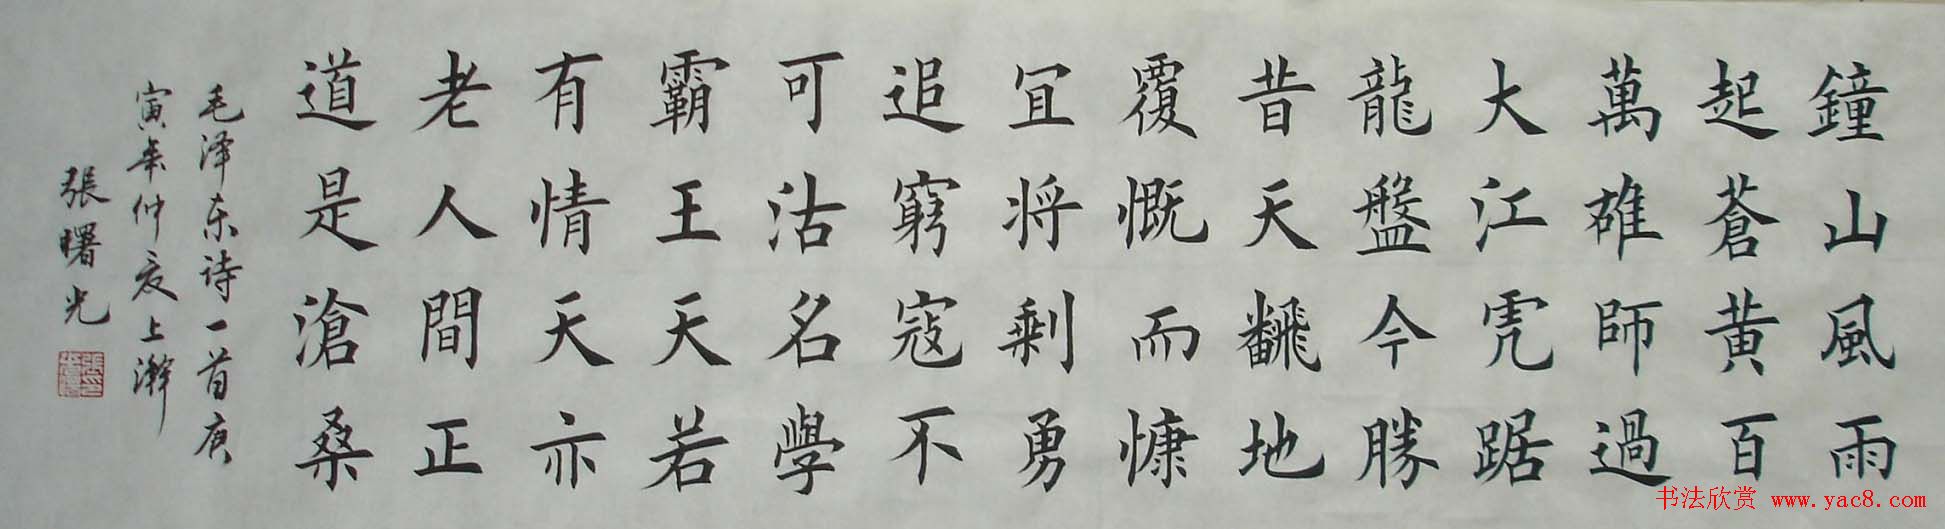 鐘山風雨
起蒼黃百
萬雄師過
大江虎踞
龍盤今勝
昔天飜地
覆慨而慷
宜将剰勇
追窮寇不
可沽名學
霸王天若
有情天亦
老人間正
道是滄桑
毛泽东诗一首庚
寅年仲夏上澣
張曙光
书法欣赏 www.yac8.com